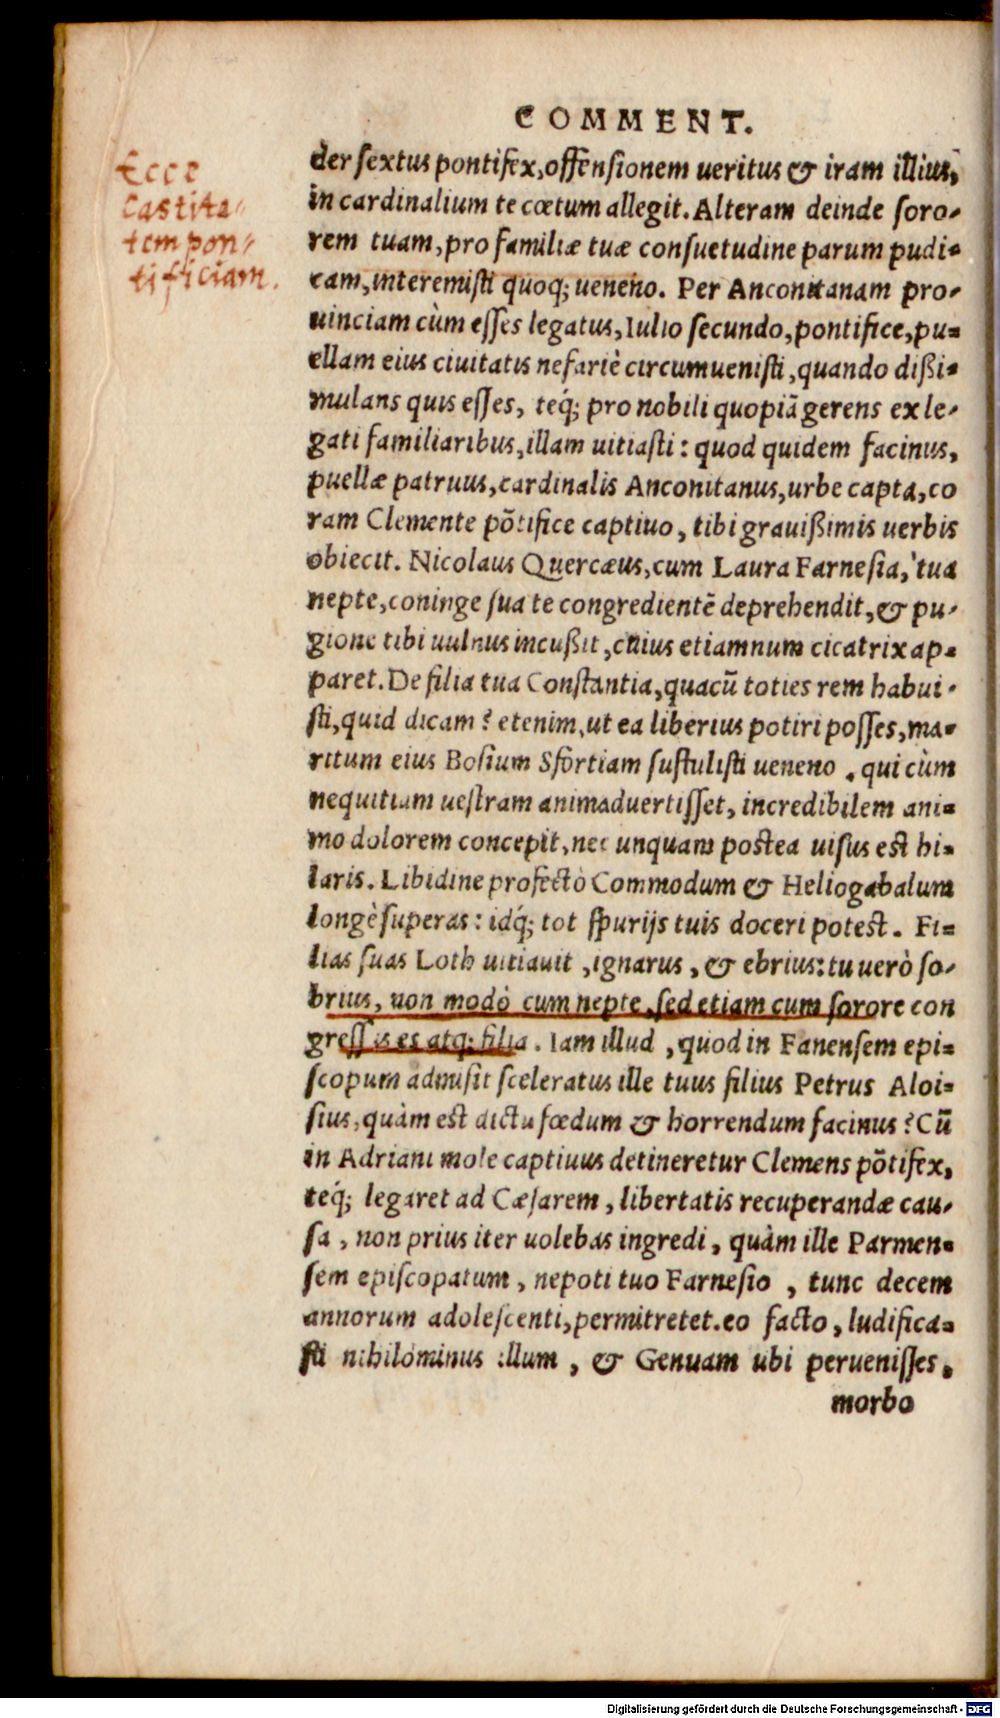 COMMENT.
Ecce
castita„
tem pon„
tificiam.
der sextus pontifex, offensionem ueritus & iram illius,
in cardinalium te cœtum allegit. Alteram deinde soro-
rem tuam, pro familiæ tuæ consuetudine parum pudi-
cam, interemisti quoq; ueneno. Per Anconitanam pro-
uinciam cùm esses legatus, Iulio secundo, pontifice, pu-
ellam eius ciuitatis nefariè circumuenisti, quando dißi-
mulans quis esses, teq́; pro nobili quopiã gerens ex le-
gati familiaribus, illam uitiasti: quod quidem facinus,
puellæ patruus, cardinalis Anconitanus, urbe capta, co
ram Clemente põtifice captiuo, tibi grauißimis uerbis
obiecit. Nicolaus Quercæus, cum Laura Farnesia, tua
nepte, coniuge sua te congredientẽ deprehendit, & pu-
gione tibi uulnus incußit, cuius etiamnum cicatrix ap-
paret. De filia tua Constantia, quacũ toties rem habui-
sti, quid dicam? etenim, ut ea liberius potiri posses, ma-
ritum eius Bosium Sfortiam sustulisti ueneno. qui cùm
nequitiam uestram animaduertisset, incredibilem ani-
mo dolorem concepit, nec unquam postea uisus est hi-
laris. Libidine profectò Commodum & Heliogabalum
longè superas: idq́; tot spurijs tuis doceri potest. Fi-
lias suas Loth uitiauit, ignarus, & ebrius: tu uerò so-
brius, non modò cum nepte, sed etiam cum sorore con
gressis es atq; filia. Iam illud, quod in Fanensem epi-
scopum admisit sceleratus ille tuus filius Petrus Aloi-
sius, quàm est dictu fœdum & horrendum facinus? Cũ
in Adriani mole captiuus detineretur Clemens põtifex,
teq́; legaret ad Cæsarem, libertatis recuperandæ cau-
sa, non prius iter uolebas ingredi, quàm ille Parmen-
sem episcopatum, nepoti tuo Farnesio, tunc decem
annorum adolescenti, permitretet. eo facto, ludifica-
sti nihilominus illum, & Genuam ubi peruenisses,
morbo
Digitalisierung gefördert durch die Deutsche Forschungsgemeinschaft - DFG